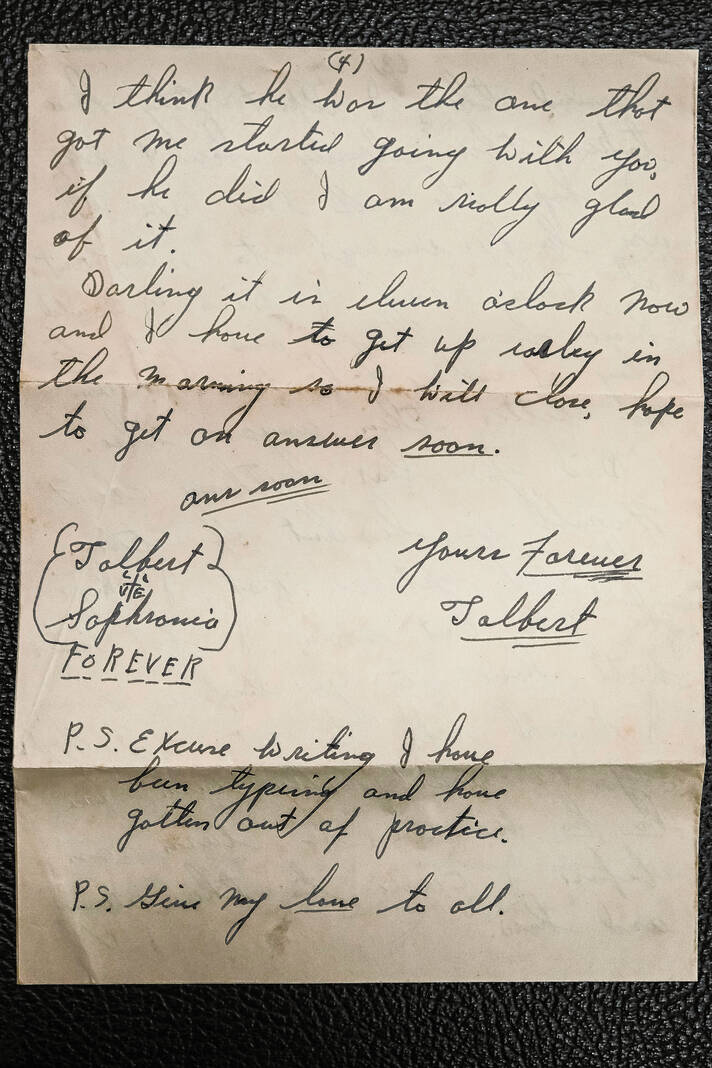 (4)
I think he was the one that
got me started going with you,
if he did I am really glad
of it.
Darling it is eleven o'clock now
and I have to get up early in
the morning so I will close, hope
to get an answer soon.
ans soon
Talbert
Sophronia
FOREVER
Yours Forever
Talbert
P.S. Excuse writing I have
been typing and have
gotten out of practice.
P.S. Give my love to all.